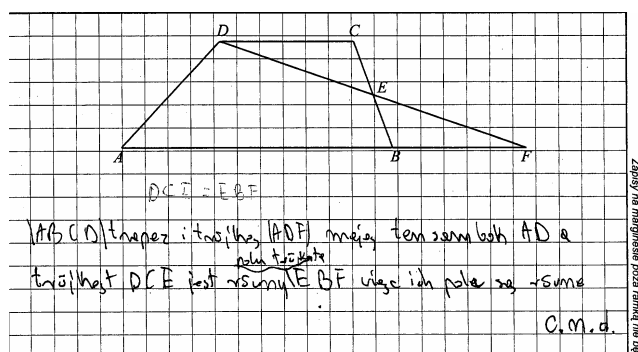 D C
E
A B F
DCE = EBF
|ABCD| trapez i trójkąt |ADF| mają ten sam bok AD a
polu trójkąta
trójkąt DCE jest równy EBF więc ich pola są równe
C.N.D.
Zapisy na marginesie poza ramką nie bę